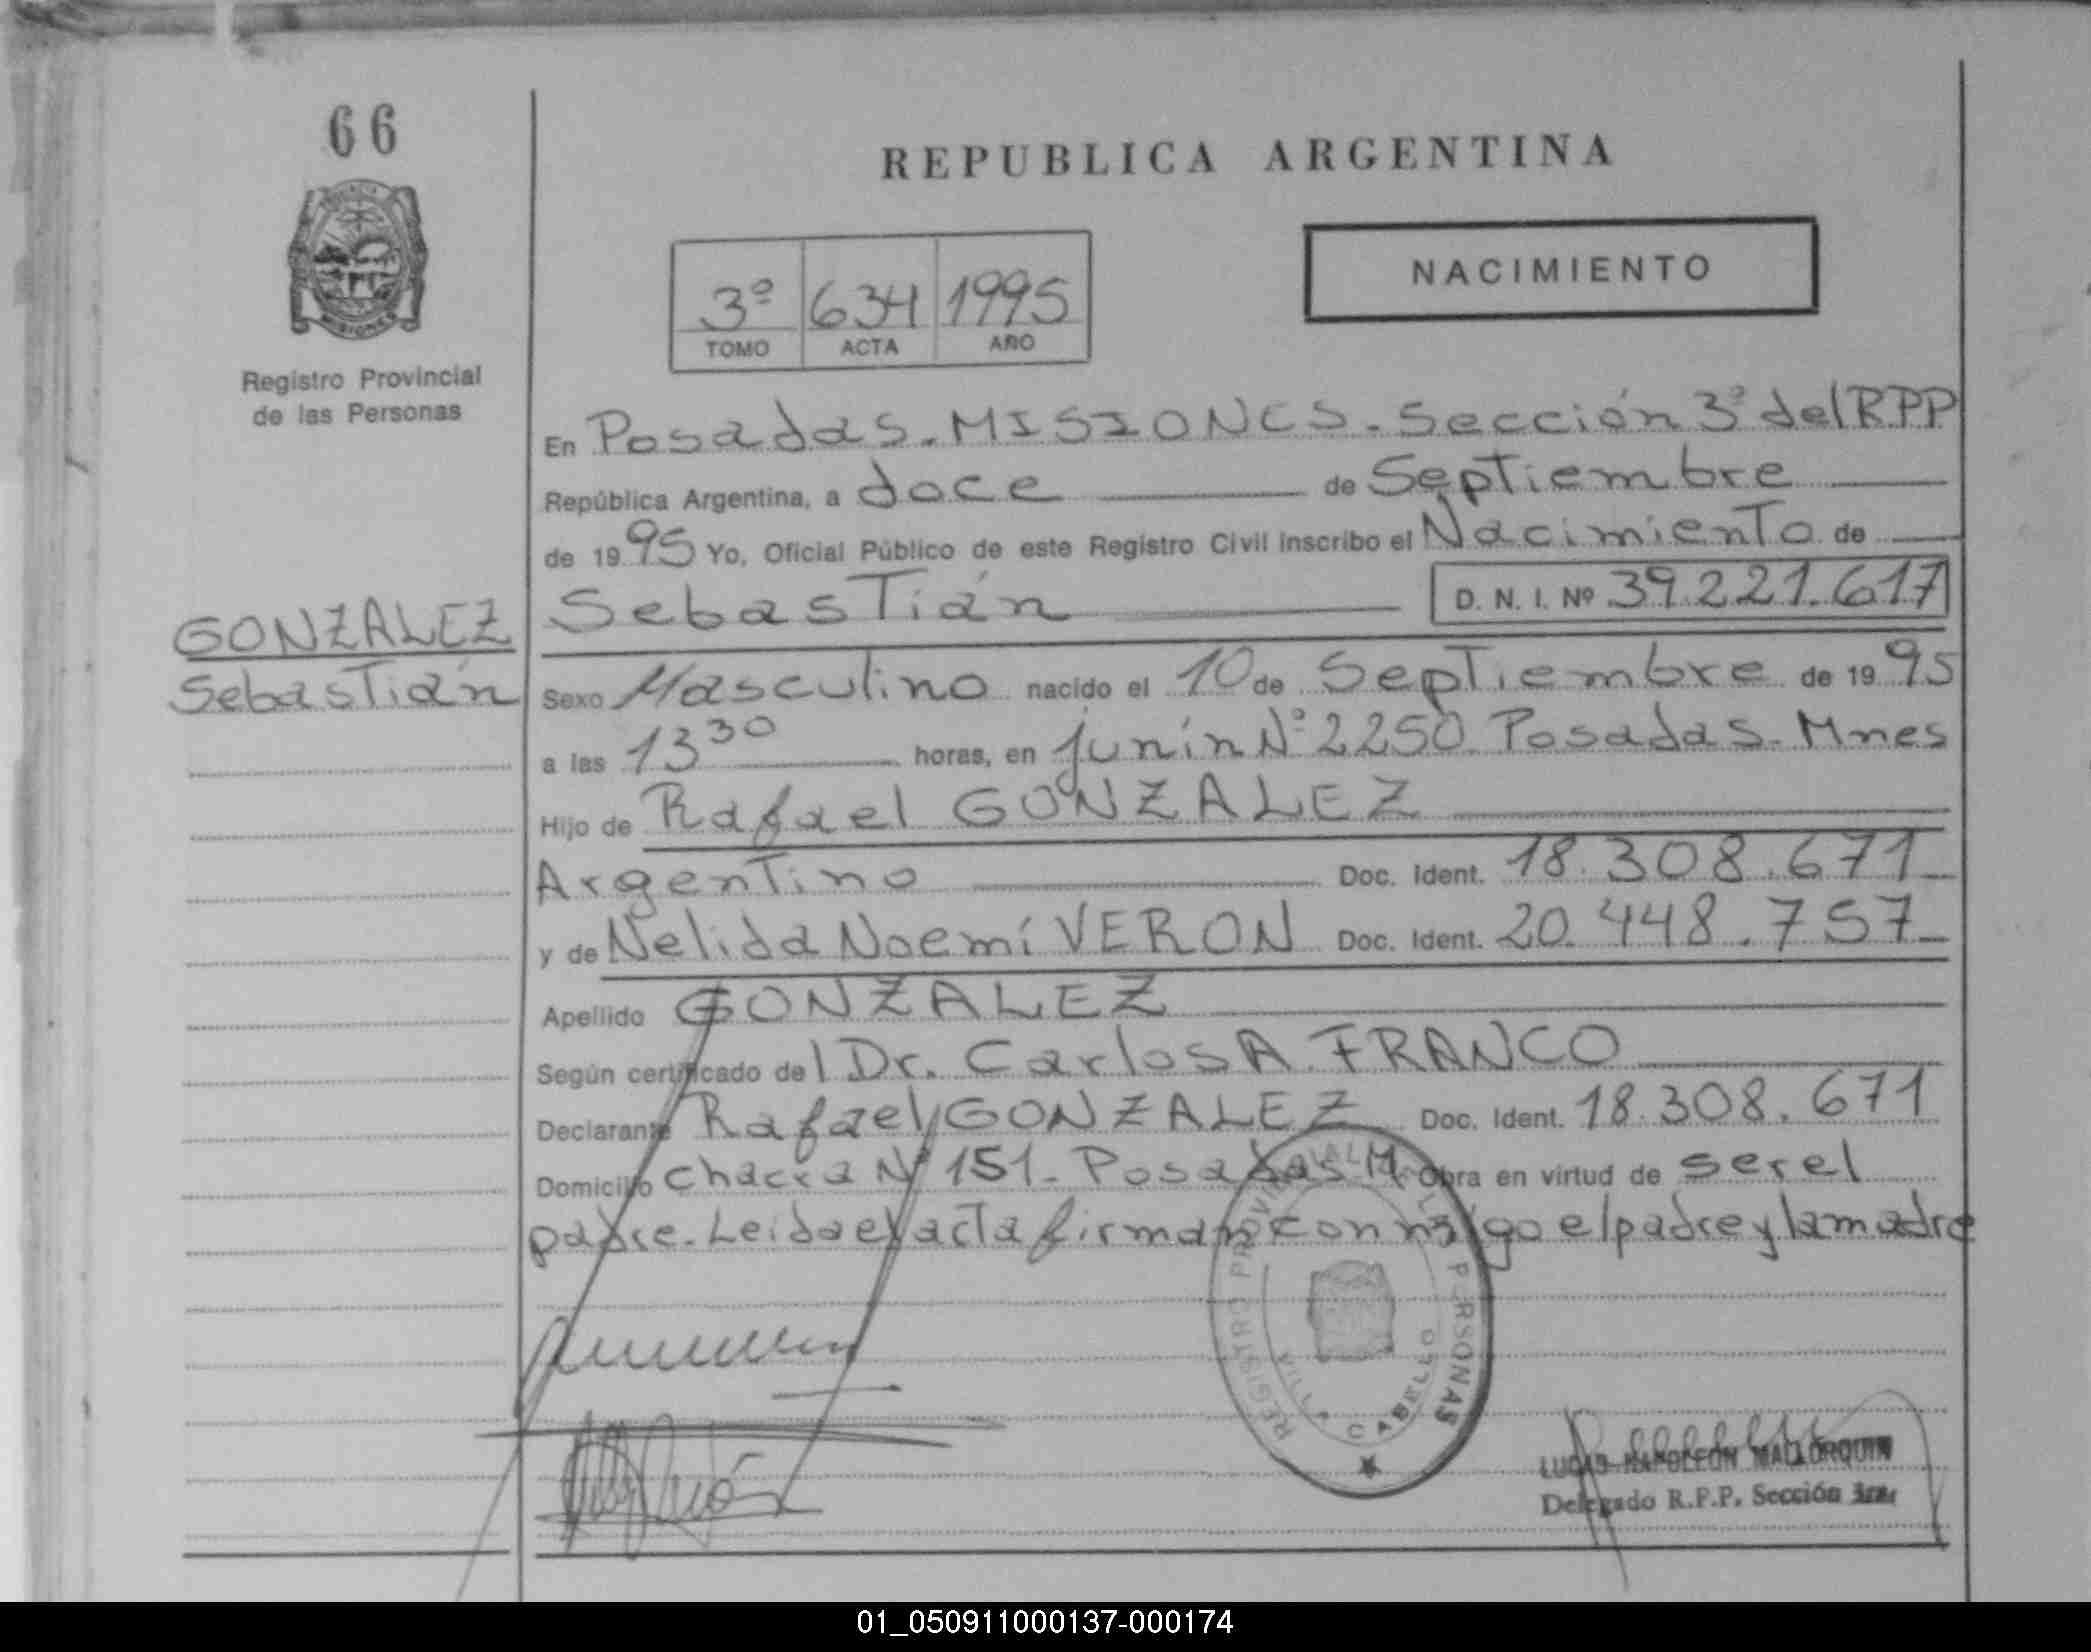 66
REPUBLICA ARGENTINA
NACIMIENTO
3º 634 1995
TOMO ACTA AÑO
MISIONES
Registro Provincial
de las Personas
En Posadas.MISIONES.Sección 3º del RPP
República Argentina, a doce de Septiembre
de 1995 Yo, Oficial Público de este Registro Civil inscribo el Nacimiento de
Sebastián D. N. I. Nº 39.221.617
GONZALEZ
Sebastián
Sexo Masculino nacido el 10 de Septiembre de 1995
a las 13 30 horas, en junín Nº 2250. Posadas. Mnes
Hijo de Rafael GONZALEZ
Argentino Doc. Ident. 18.308.671
y de Nelida Noemí VERON Doc. Ident. 20.448.757
Apellido GONZALEZ
Según certificado del Dr. Carlos A. FRANCO
Declarante Rafael GONZALEZ Doc. Ident. 18.308.671
Domicilio Chacra Nº 151. Posadas M. Obra en virtud de ser el
padre. Leida el acta firman conmigo el padre y la madre
REGISTRO PROVINCIAL PERSONAS
VILLA CABELLO
LUCAS NAPOLEON MALLORQUIN
Delegado R.P.P. Sección 3ra.
01_050911000137-000174